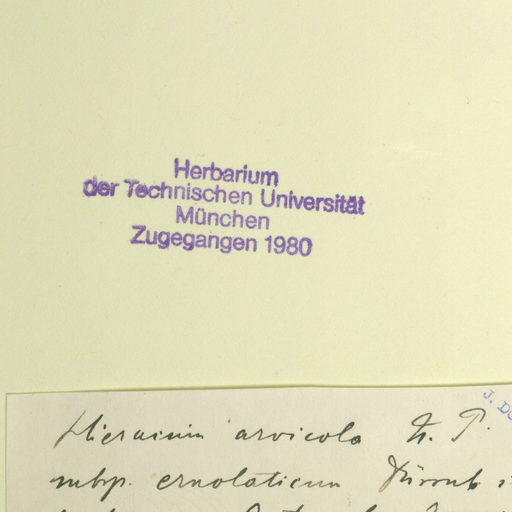 Herbarium
der Technischen Universität
München
Zugegangen 1980
J. D
Hieracium arvicola N. P.
subsp.